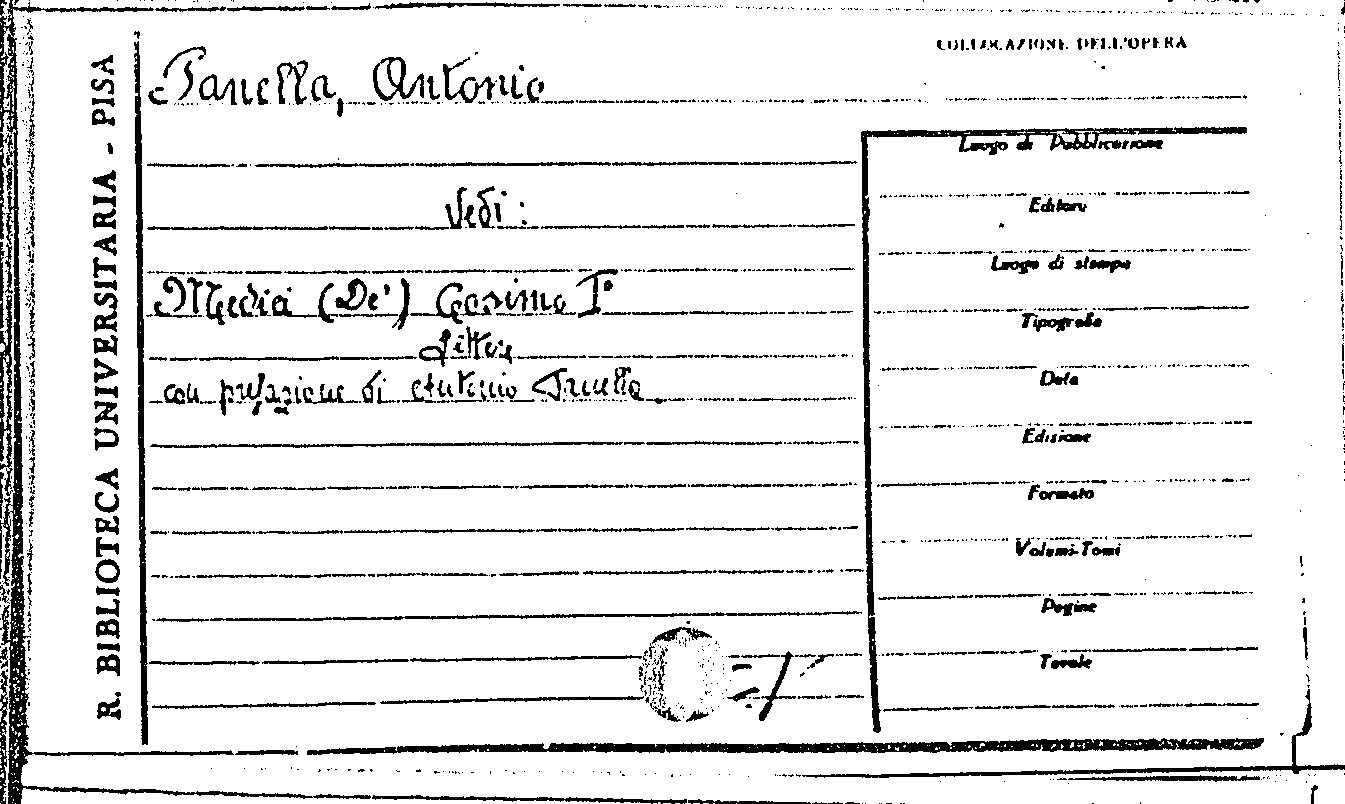 COLLOCAZIONE DELL'OPERA
R. BIBLIOTECA UNIVERSITARIA - PISA
Panella, Antonio
Vedi:
Medici (De') Cosimo I°
Lettere
con prefazione di Antonio Panella.
Luogo di Pubblicazione
Editore
Luogo di stampa
Tipografia
Data
Edizione
Formato
Volumi-Tomi
Pagine
Tavole